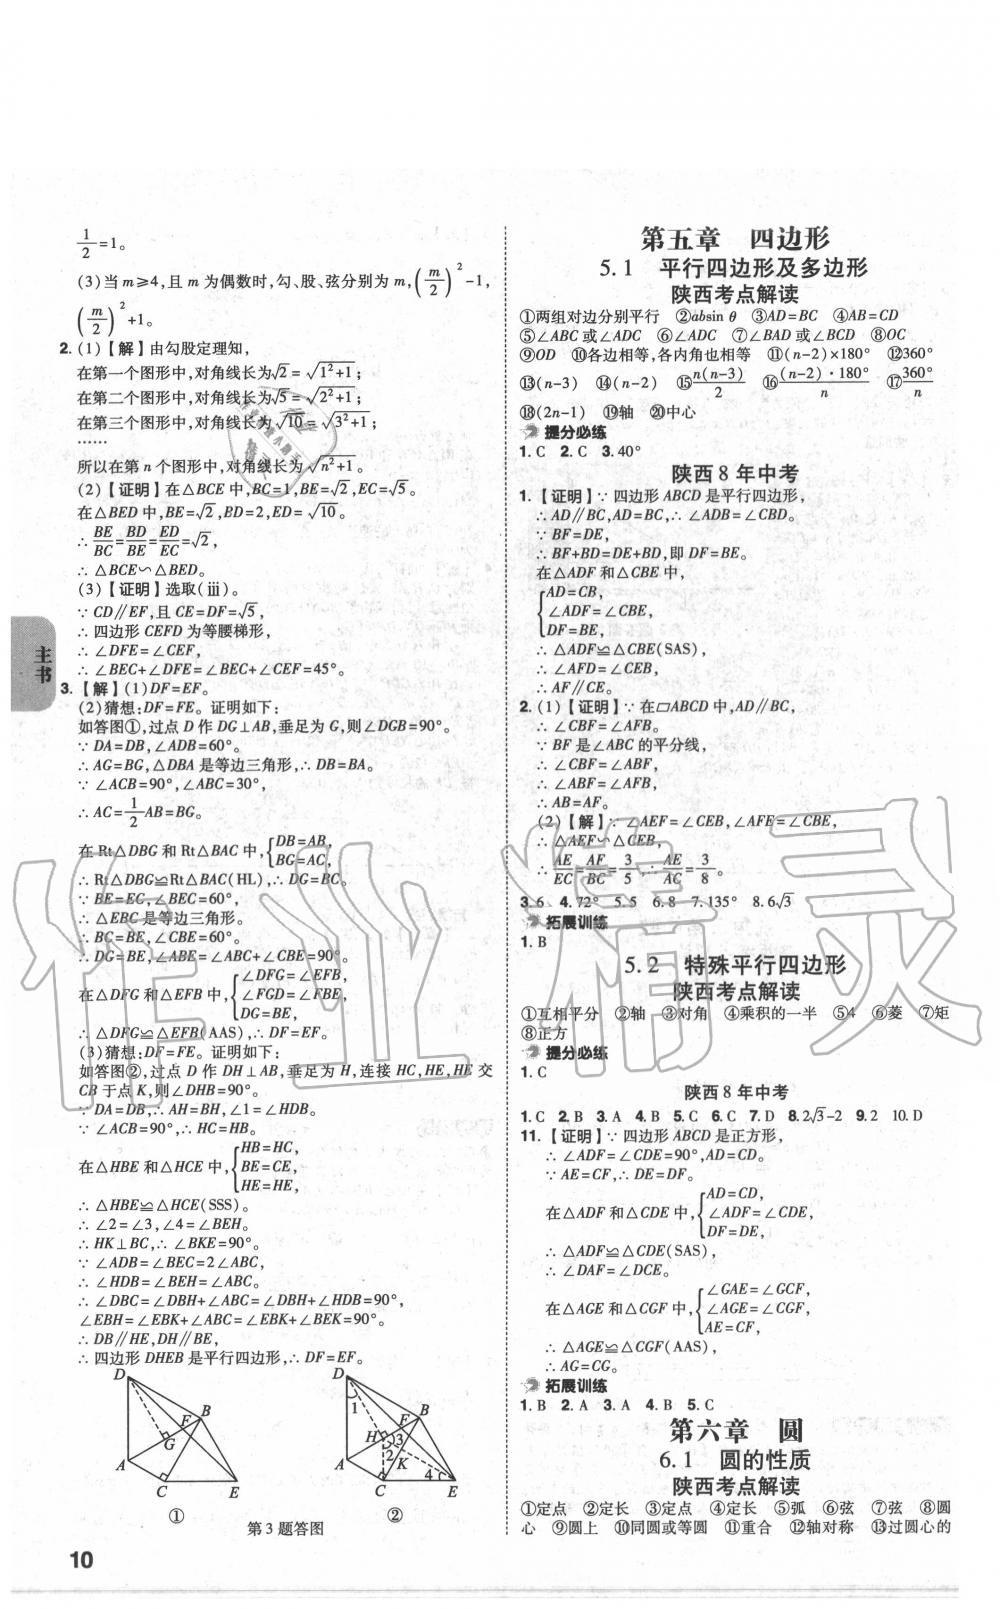 1/2=1。
(3)当m≥4,且m为偶数时,勾、股、弦分别为m,(m/2)²-1,
(m/2)²+1。
2.(1)【解】由勾股定理知,
在第一个图形中,对角线长为√2=√(1²+1);
在第二个图形中,对角线长为√5=√(2²+1);
在第三个图形中,对角线长为√10=√(3²+1);
……
所以在第n个图形中,对角线长为√(n²+1)。
(2)【证明】在△BCE中,BC=1,BE=√2,EC=√5。
在△BED中,BE=√2,BD=2,ED=√10。
∴BE/BC=BD/BE=ED/EC=√2,
∴△BCE∽△BED。
(3)【证明】选取(ⅲ)。
∵CD∥EF,且CE=DF=√5,
∴四边形CEFD为等腰梯形,
∴∠DFE=∠CEF,
∴∠BEC+∠DFE=∠BEC+∠CEF=45°。
3.【解】(1)DF=EF。
(2)猜想:DF=FE。证明如下:
如答图①,过点D作DG⊥AB,垂足为G,则∠DGB=90°。
∵DA=DB,∠ADB=60°。
∴AG=BG,△DBA是等边三角形,∴DB=BA。
∵∠ACB=90°,∠ABC=30°,
∴AC=1/2AB=BG。
在Rt△DBG和Rt△BAC中,{DB=AB,
BG=AC,
∴Rt△DBG≌Rt△BAC(HL),∴DG=BC。
∵BE=EC,∠BEC=60°,
∴△EBC是等边三角形。
∴BC=BE,∠CBE=60°。
∴DG=BE,∠ABE=∠ABC+∠CBE=90°。
在△DFG和△EFB中,{∠DFG=∠EFB,
∠FGD=∠FBE,
DG=BE,
∴△DFG≌△EFB(AAS),∴DF=EF。
(3)猜想:DF=FE。证明如下:
如答图②,过点D作DH⊥AB,垂足为H,连接HC,HE,HE交
CB于点K,则∠DHB=90°。
∵DA=DB,∴AH=BH,∠1=∠HDB。
∵∠ACB=90°,∴HC=HB。
在△HBE和△HCE中,{HB=HC,
BE=CE,
HE=HE,
∴△HBE≌△HCE(SSS)。
∴∠2=∠3,∠4=∠BEH。
∴HK⊥BC,∴∠BKE=90°。
∵∠ADB=∠BEC=2∠ABC,
∴∠HDB=∠BEH=∠ABC。
∴∠DBC=∠DBH+∠ABC=∠DBH+∠HDB=90°,
∠EBH=∠EBK+∠ABC=∠EBK+∠BEK=90°。
∴DB∥HE,DH∥BE,
∴四边形DHEB是平行四边形,∴DF=EF。
D
F
B
G
A
C
E
①
D
1
F
B
H
3
2
K
A
4
C
E
②
第3题答图
主书
10
第五章 四边形
5.1 平行四边形及多边形
陕西考点解读
①两组对边分别平行 ②absin θ ③AD=BC ④AB=CD
⑤∠ABC或∠ADC ⑥∠ADC ⑦∠BAD或∠BCD ⑧OC
⑨OD ⑩各边相等,各内角也相等 ⑪(n-2)×180° ⑫360°
⑬(n-3) ⑭(n-2) ⑮n(n-3)/2 ⑯(n-2)·180°/n ⑰360°/n
⑱(2n-1) ⑲轴 ⑳中心
提分必练
1.C 2.C 3.40°
陕西8年中考
1.【证明】∵四边形ABCD是平行四边形,
∴AD∥BC,AD=BC,∴∠ADB=∠CBD。
∵BF=DE,
∴BF+BD=DE+BD,即DF=BE。
在△ADF和△CBE中,
{AD=CB,
∠ADF=∠CBE,
DF=BE,
∴△ADF≌△CBE(SAS),
∴∠AFD=∠CEB,
∴AF∥CE。
2.(1)【证明】∵在▱ABCD中,AD∥BC,
∴∠CBF=∠AFB。
∵BF是∠ABC的平分线,
∴∠CBF=∠ABF,
∴∠ABF=∠AFB,
∴AB=AF。
(2)【解】∵∠AEF=∠CEB,∠AFE=∠CBE,
∴△AEF∽△CEB,
∴AE/EC=AF/BC=3/5,∴AE/AC=3/8。
3.6 4.72° 5.5 6.8 7.135° 8.6√3
拓展训练
1.B
5.2 特殊平行四边形
陕西考点解读
①互相平分 ②轴 ③对角 ④乘积的一半 ⑤4 ⑥菱 ⑦矩
⑧正方
提分必练
1.C
陕西8年中考
1.C 2.B 3.A 4.B 5.C 6.C 7.D 8.2√3-2 9.2 10.D
11.【证明】∵四边形ABCD是正方形,
∴∠ADF=∠CDE=90°,AD=CD。
∵AE=CF,∴DE=DF。
在△ADF和△CDE中,{AD=CD,
∠ADF=∠CDE,
DF=DE,
∴△ADF≌△CDE(SAS),
∴∠DAF=∠DCE。
在△AGE和△CGF中,{∠GAE=∠GCF,
∠AGE=∠CGF,
AE=CF,
∴△AGE≌△CGF(AAS),
∴AG=CG。
拓展训练
1.B 2.A 3.A 4.B 5.C
第六章 圆
6.1 圆的性质
陕西考点解读
①定点 ②定长 ③定点 ④定长 ⑤弧 ⑥弦 ⑦弦 ⑧圆
心 ⑨圆上 ⑩同圆或等圆 ⑪重合 ⑫轴对称 ⑬过圆心的
作业精灵